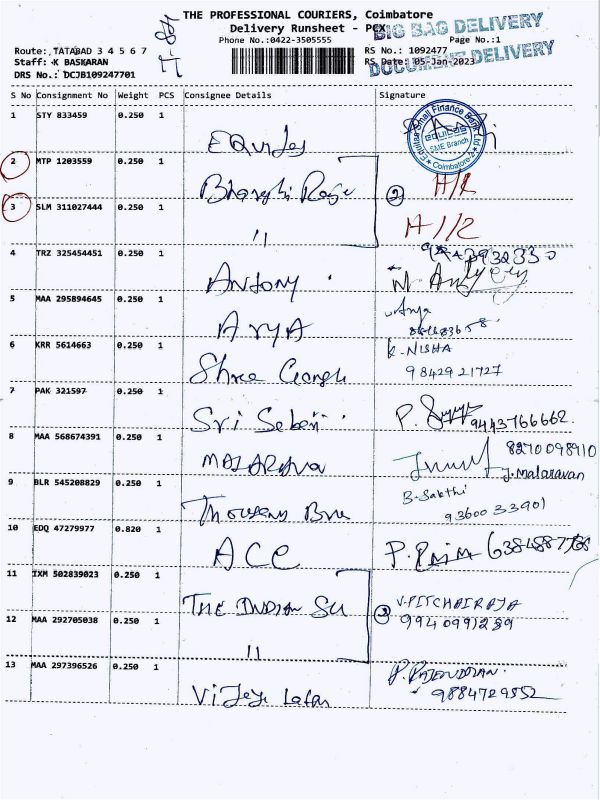 THE PROFESSIONAL COURIERS, Coimbatore
Delivery Runsheet - PCX
BIG BAG DELIVERY
Phone No.:0422-3505555 Page No.:1
Route: TATABAD 3 4 5 6 7 RS No.: 1092477
DOCUMENT DELIVERY
Staff: K BASKARAN RS Date: 05-Jan-2023
DRS No.: DCJB109247701
S No Consignment No Weight PCS Consignee Details Signature
1 STY 833459 0.250 1
Equitas Small Finance Bank Ltd
EQUITAS
SME Branch
Coimbatore-2
2 MTP 1203559 0.250 1
2 H/R
3 SLM 311027444 0.250 1
11
4 TRZ 325454451 0.250 1
Antony
5 MAA 295894645 0.250 1
ARYA Arya
6 KRR 5614663 0.250 1 K. NISHA
Shree 9842921727
7 PAK 321597 0.250 1
Sri P. 9443766662
8 MAA 568674391 0.250 1 8270098910
J. Malaravan
9 BLR 545208829 0.250 1 B. Sakthi
9360033901
10 EDQ 47279977 0.820 1
ACE P.
11 IXM 502839023 0.250 1
THE INDIAN SU 3 V. PITCHAIRAJA
12 MAA 292705038 0.250 1 9940991289
11
13 MAA 297396526 0.250 1 P. RAJENDRAN
9884729552